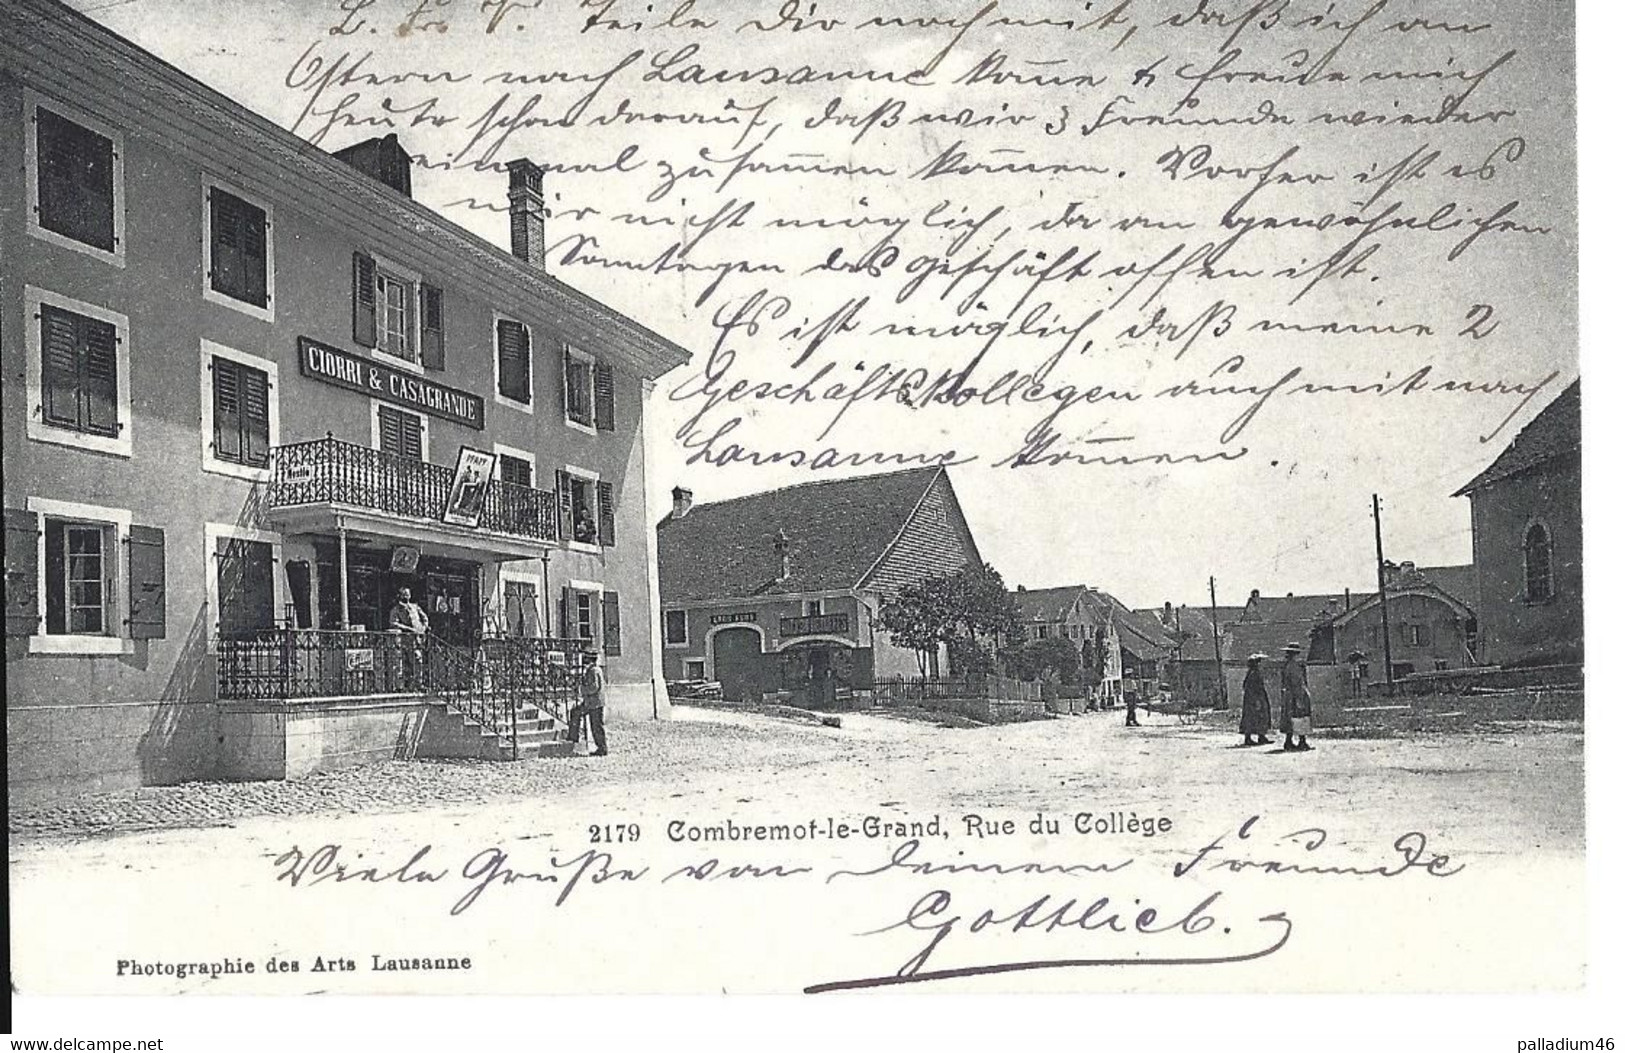 L. Fr. Teile Dir noch mit, daß ich an
Ostern nach Lausanne kom̄e & freue mich
heute schon darauf, daß wir 3 Freunde wieder
einmal zusam̄en kom̄en. Vorher ist es
mir nicht möglich, da an gewöhnlichen
Sonntagen das Geschäft offen ist.
Es ist möglich, daß meine 2
Geschäftskollegen auch mit nach
Lausanne kom̄men.
CIORRI & CASAGRANDE
Nestlé
PFAFF
2179 Combremot-le-Grand, Rue du Collège
Viele Grüße von Deinem Freunde
Gottlieb.
Photographie des Arts Lausanne
www.delcampe.net
palladium46